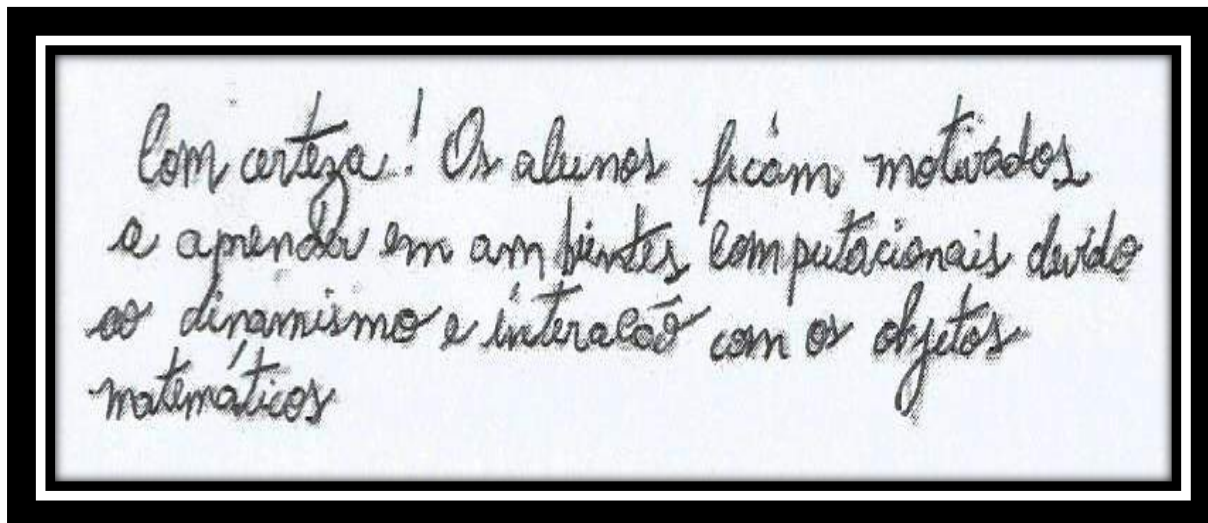 Com certeza! Os alunos ficam motivados
a aprender em ambientes computacionais devido
ao dinamismo e interação com os objetos
matemáticos